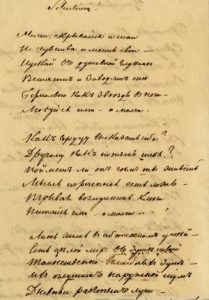 Silentium!
Молчи, скрывайся и таи
И чувства и мечты свои —
Пускай въ душевной глубинѣ
Встаютъ и заходятъ онѣ
Безмолвно какъ звѣзды въ ночи —
Любуйся ими — и молчи.
Какъ сердцу высказать себя?
Другому какъ понять тебя?
Пойметъ ли онъ чѣмъ ты живешь
Мысль изреченная есть ложь —
Взрывая возмутишь ключи
Питайся ими — и молчи —
Лишь жить в самомъ себѣ умѣй —
Есть цѣлый міръ въ душѣ твоей
Таинственно волшебныхъ думъ —
Ихъ оглушитъ наружный шумъ
Дневные разгонятъ лучи —